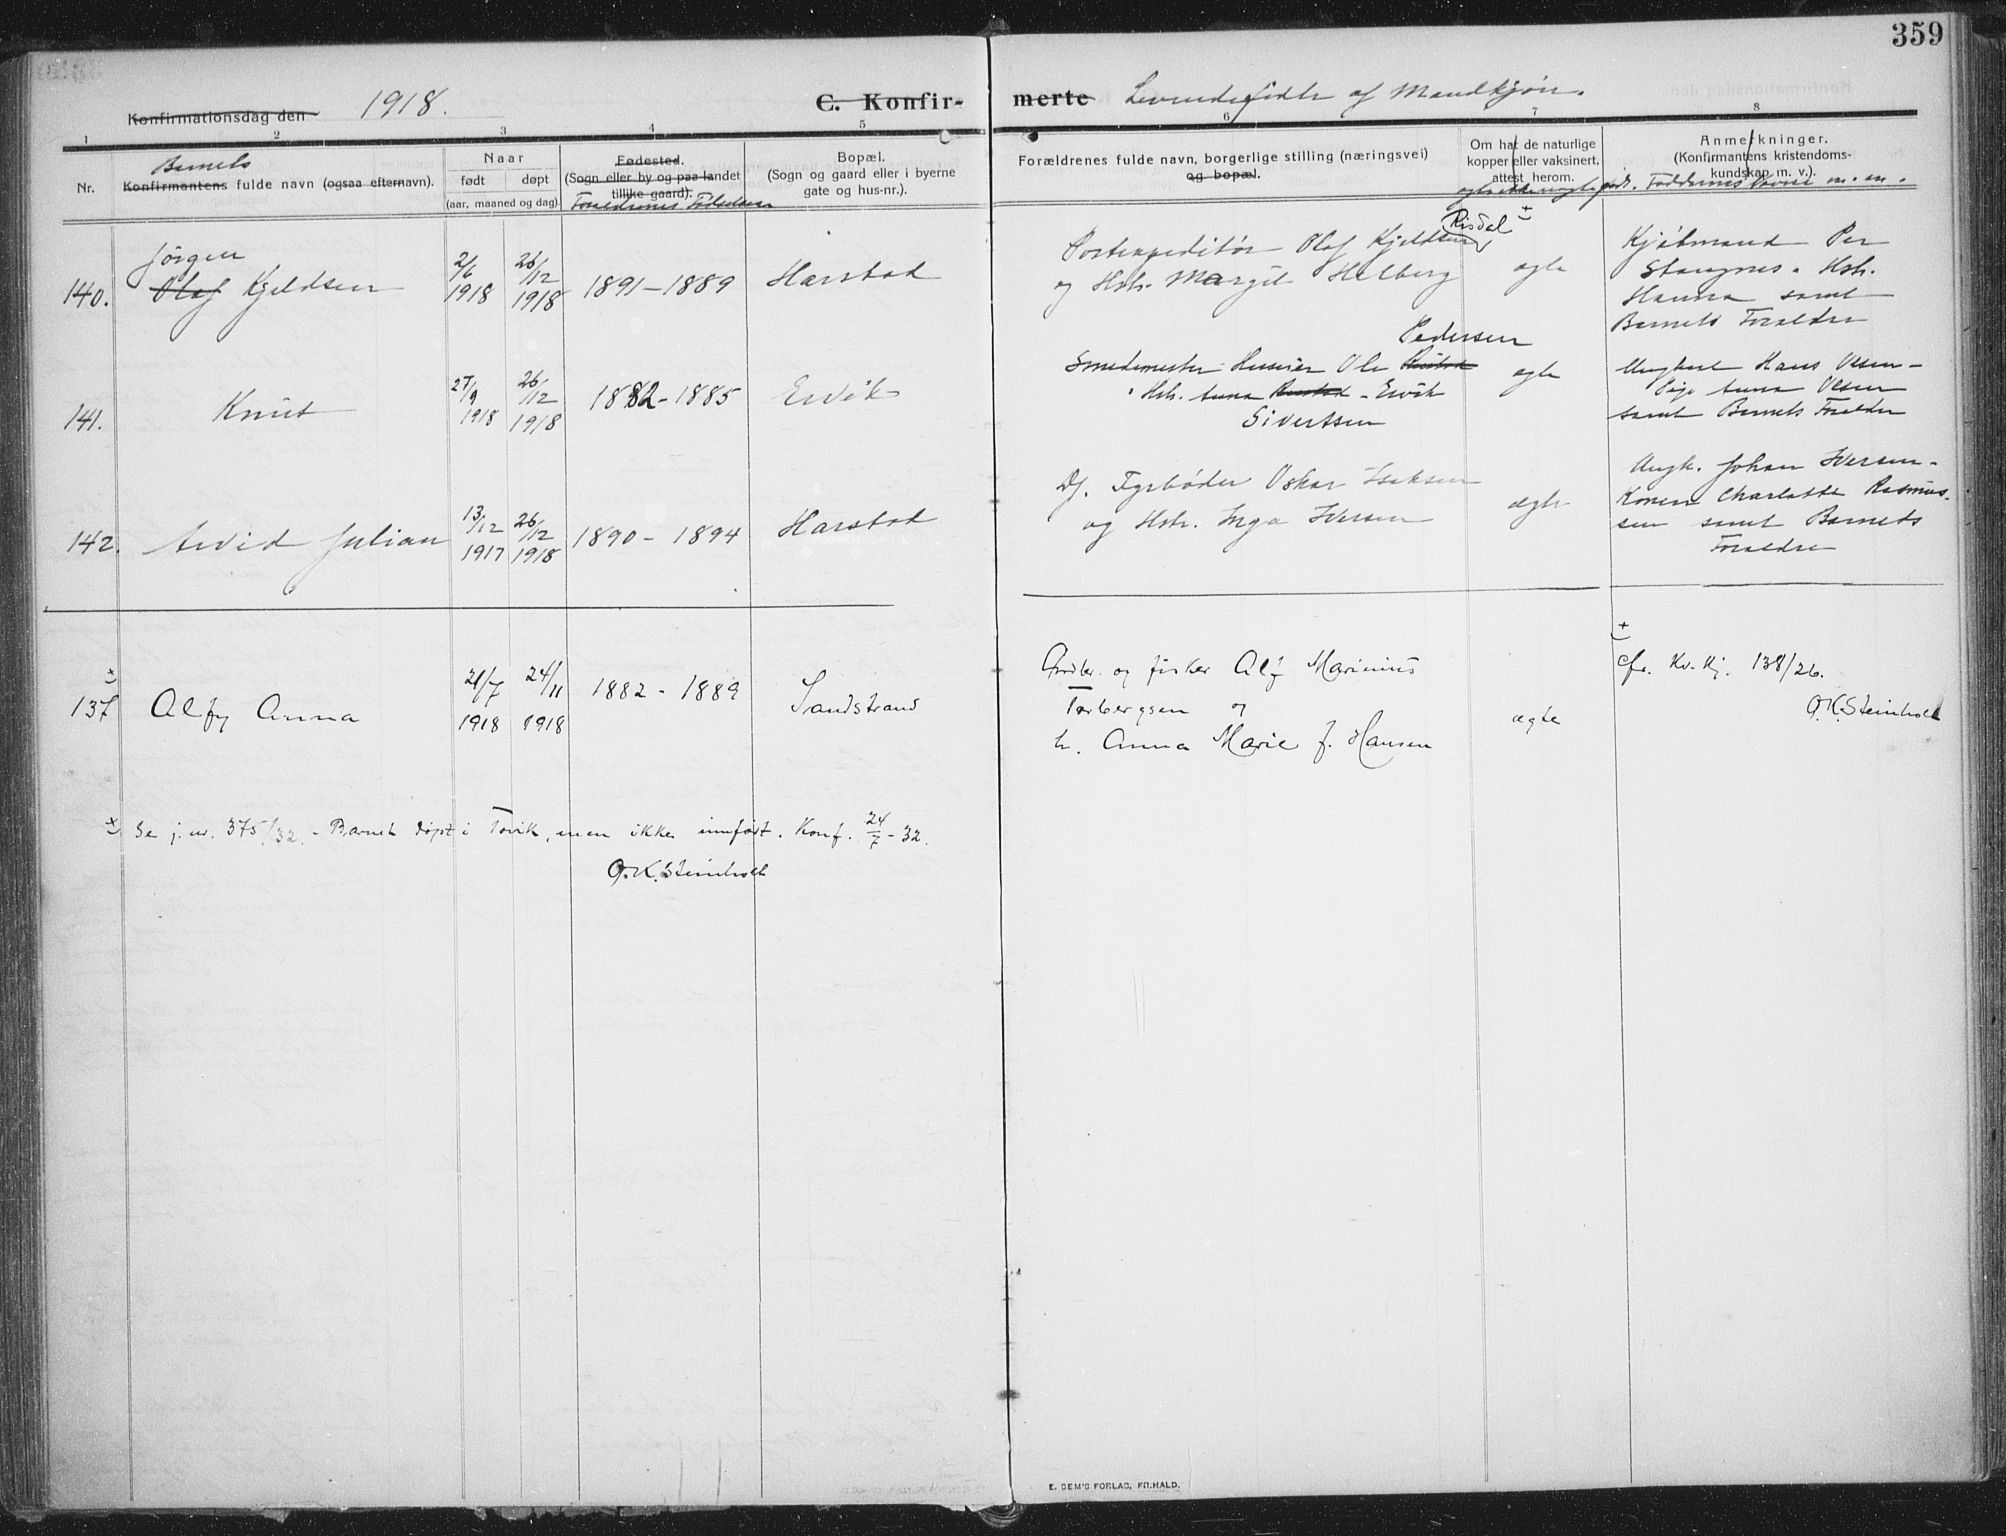 359
Konfirmationsdag den 1918. C. Konfir-merte Levendefødte af Mandkjøn.
1 2 3 4 5 6 7 8
Barnets
Nr. Konfirmantens fulde navn (ogsaa efternavn).
Naar
født døpt
(aar, maaned og dag)
Fødested.
(Sogn eller by og paa landet
tillike gaard).
Forældrenes Fødselsaar
Bopæl.
(Sogn og gaard eller i byerne
gate og hus-nr.).
Forældrenes fulde navn, borgerlige stilling (næringsvei)
og bopæl.
Om hat de naturlige
kopper eller vaksinert,
attest herom.
Anmerkninger.
(Konfirmantens kristendoms-
kundskap m. v.).
Faddernes Navne m. m.
140. Jørgen
Olaf Kjeldsen
2/6 1918
26/12 1918
1891-1889 Harstad
Risdal ±
Postexpeditør Olaf Kjeldsen
og Hstr. Margit Helberg
ægte
Kjøbmand Per
Stangnes. Hstr.
Hanna samt
Barnets Forældre
141. Knut
27/9 1918
26/12 1918
1882-1885 Ervik
Pedersen
Smedemester Huseier Ole
Hstr. Anna - Ervik
Sivertsen
ægte
Ungkarl Hans Olsen -
Pige Anna Olsen
samt Barnets Forældre
142. Arvid Julian
13/12 1917
26/12 1918
1890 - 1894 Harstad
Df. Fyrbøder Oskar Isaksen
og Hstr. Inga Iversen
ægte
Ungk. Johan Iversen -
Konen Charlotte Rasmus-
sen samt Barnets
Forældre
±
137 Alfy Anna
21/7 1918
24/11 1918
1882 - 1889 Sandstrand
Grdbr. og fisker Alf Marinius
Torbergsen og
h. Anna Marie f. Hansen
ægte
±
cfr. Kv. kj. 138/26.
O.K. Steinholt
± Se j.nr. 375/32. - Barnet døpt i Tovik, men ikke innført. Konf. 24/7 - 32.
O.K. Steinholt
E. SEM'S FORLAG, FR.HALD.